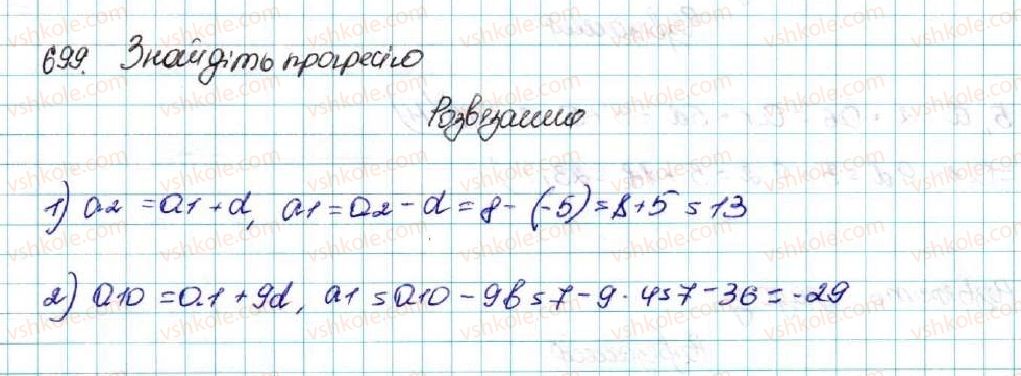 699. Знайдіть прогресію
Розв'язання
1) a2 = a1 + d, a1 = a2 - d = 8 - (-5) = 8 + 5 = 13
2) a10 = a1 + 9d, a1 = a10 - 9d = 7 - 9 · 4 = 7 - 36 = -29